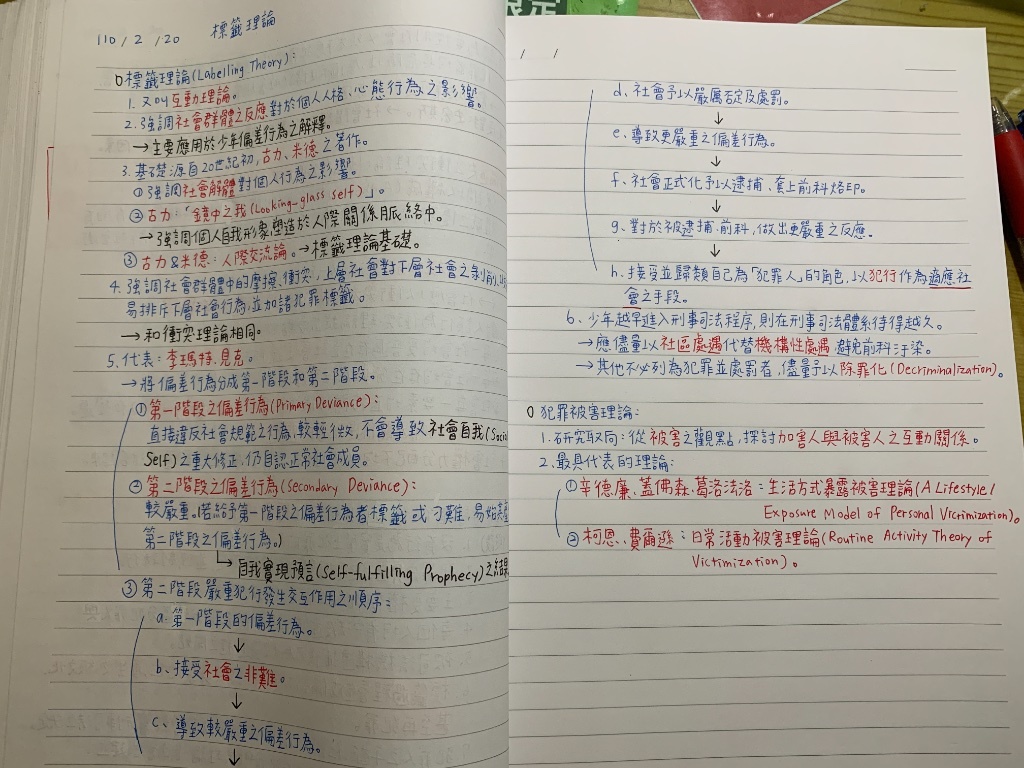 110/2/20 標籤理論
標籤理論(Labelling Theory):
1. 又叫互動理論。
2. 強調社會群體之反應對於個人人格、心態行為之影響。
→主要應用於少年偏差行為之解釋。
3. 基礎源自20世紀初,古力、米德之著作。
①強調社會解體對個人行為之影響。
②古力:「鏡中之我(Looking-glass self)」。
→強調個人自我形象塑造於人際關係脈絡中。
③古力&米德:人際交流論。→標籤理論基礎。
4. 強調社會群體中的摩擦、衝突,上層社會對下層社會之
易排斥下層社會行為,並加諸犯罪標籤。
→和衝突理論相同。
5. 代表:李瑪特、貝克。
→將偏差行為分成第一階段和第二階段。
①第一階段之偏差行為(Primary Deviance):
直接違反社會規範之行為,較輕微,不會導致社會自我(Social
Self)之重大修正,仍自認正常社會成員。
②第二階段之偏差行為(Secondary Deviance):
較嚴重。(若給予第一階段之偏差行為者標籤或刁難,易始
第二階段之偏差行為。)
→自我實現預言(Self-fulfilling Prophecy)之結
③第二階段嚴重犯行發生交互作用之順序:
a. 第一階段的偏差行為。
↓
b、接受社會之非難。
↓
c、導致較嚴重之偏差行為。
↓
/ /
d、社會予以嚴厲否定及處罰。
↓
e、導致更嚴重之偏差行為。
↓
f、社會正式化予以逮捕、套上前科烙印。
↓
g、對於被逮捕、前科,做出更嚴重之反應。
↓
h、接受並歸類自己為「犯罪人」的角色,以犯行作為適應社
會之手段。
6、少年越早進入刑事司法程序,則在刑事司法體系待得越久。
→應儘量以社區處遇代替機構性處遇,避免前科汙染。
→其他不必列為犯罪並處罰者,儘量予以除罪化(Decriminalization)。
犯罪被害理論:
1. 研究取向:從被害之觀點,探討加害人與被害人之互動關係。
2. 最具代表的理論:
①辛德廉、蓋佛森、葛洛法洛:生活方式暴露被害理論(A Lifestyle/
Exposure Model of Personal Victimization)。
②柯恩、費爾遜:日常活動被害理論(Routine Activity Theory of
Victimization)。